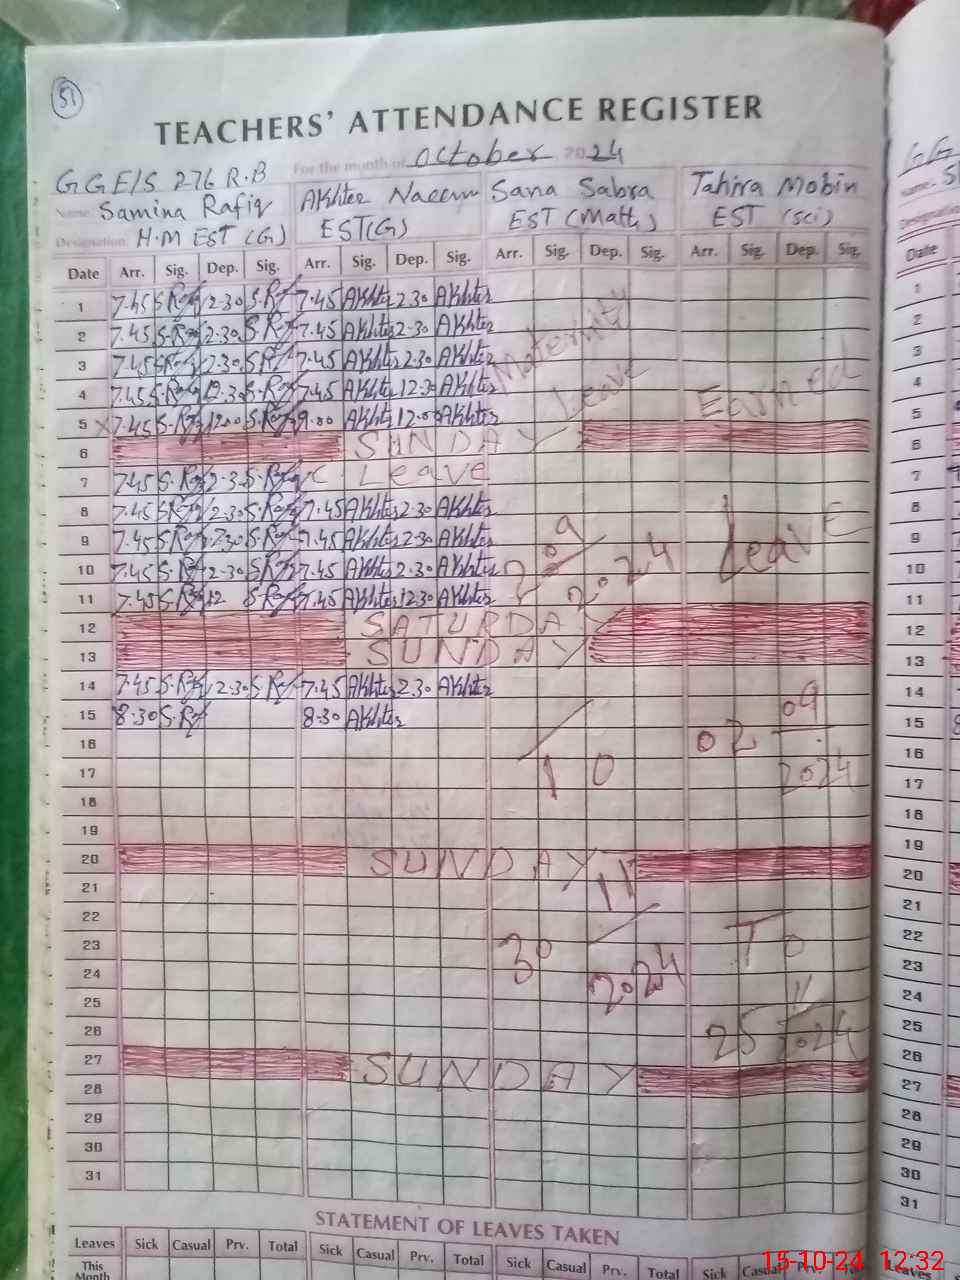 51
TEACHERS' ATTENDANCE REGISTER
For the month of October 2024
GGE/S 276 R.B
Name: Samina Rafiq Akhter Naeem Sana Sabra Tahira Mobin
Designation: H.M EST (G) EST(G) EST (Math) EST (sci)
Date Arr. Sig. Dep. Sig. Arr. Sig. Dep. Sig. Arr. Sig. Dep. Sig. Arr. Sig. Dep. Sig.
1 7.45 2.30 7.45 Akhter 2.30 Akhter
2 7.45 2.30 7.45 Akhter 2.30 Akhter
3 7.45 2.30 7.45 Akhter 2.30 Akhter
4 7.45 12.30 7.45 Akhter 12.30 Akhter
5 7.45 1200 9.00 Akhter 12.00 Akhter
6 SUNDAY
7 7.45 2.3 C Leave
8 7.45 2.30 7.45 Akhter 2.30 Akhter
9 7.45 2.30 7.45 Akhter 2.30 Akhter
10 7.45 2.30 7.45 Akhter 2.30 Akhter
11 7.45 12 7.45 Akhter 12.30 Akhter
12 SATURDAY
13 SUNDAY
14 7.45 2.30 7.45 Akhter 2.30 Akhter
15 8.30 8.30 Akhter
16
17
18
19
20 SUNDAY
21
22
23
24
25
26
27 SUNDAY
28
29
30
31
Maternity
Leave
2024
10
30 11
2024
Earned
Leave
02 09
2024
To
25 11
2024
STATEMENT OF LEAVES TAKEN
Leaves Sick Casual Prv. Total Sick Casual Prv. Total Sick Casual Prv. Total Sick Casual
This
Month
15-10-24 12:32
Date
1
2
3
4
5
6
7
8
9
10
11
12
13
14
15
16
17
18
19
20
21
22
23
24
25
26
27
28
29
30
31
Leaves